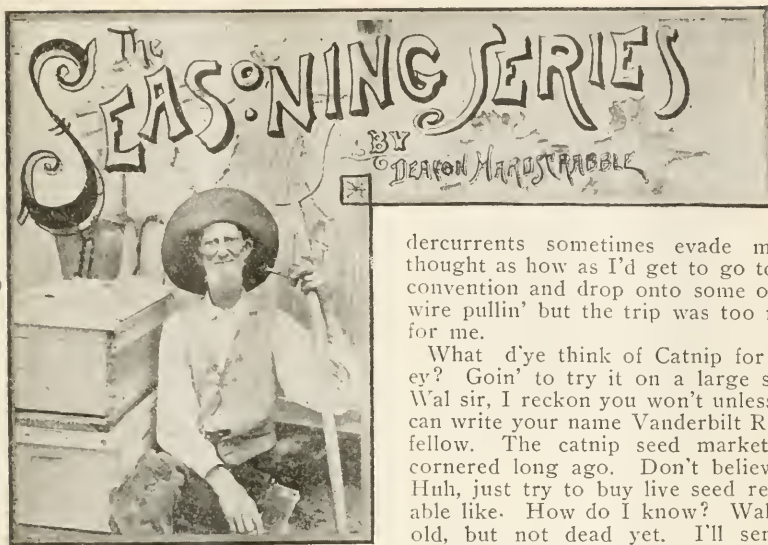 The
SEASONING SERIES
BY
DEACON HARDSCRABBLE
dercurrents sometimes evade m
thought as how as I'd get to go to
convention and drop onto some o
wire pullin' but the trip was too
for me.
What d'ye think of Catnip for
ey? Goin' to try it on a large s
Wal sir, I reckon you won't unless
can write your name Vanderbilt R
fellow. The catnip seed market
cornered long ago. Don't believ
Huh, just try to buy live seed re
able like. How do I know? Wal
old, but not dead yet. I'll ser